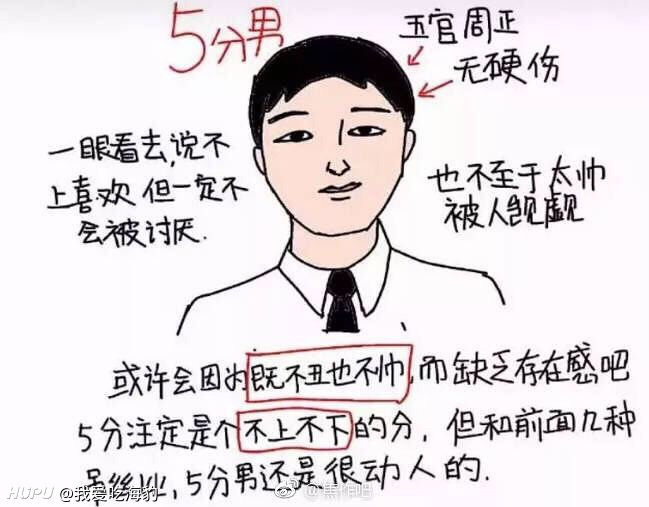 5分男
五官周正
无硬伤
一眼看去,说不
上喜欢但一定不
会被讨厌.
也不至于太帅
被人觊觎
或许会因为既不丑也不帅,而缺乏存在感吧
5分注定是个不上不下的分,但和前面几种
比,5分男还是很动人的.
HUPU @我爱吃海豹
@焦作吧